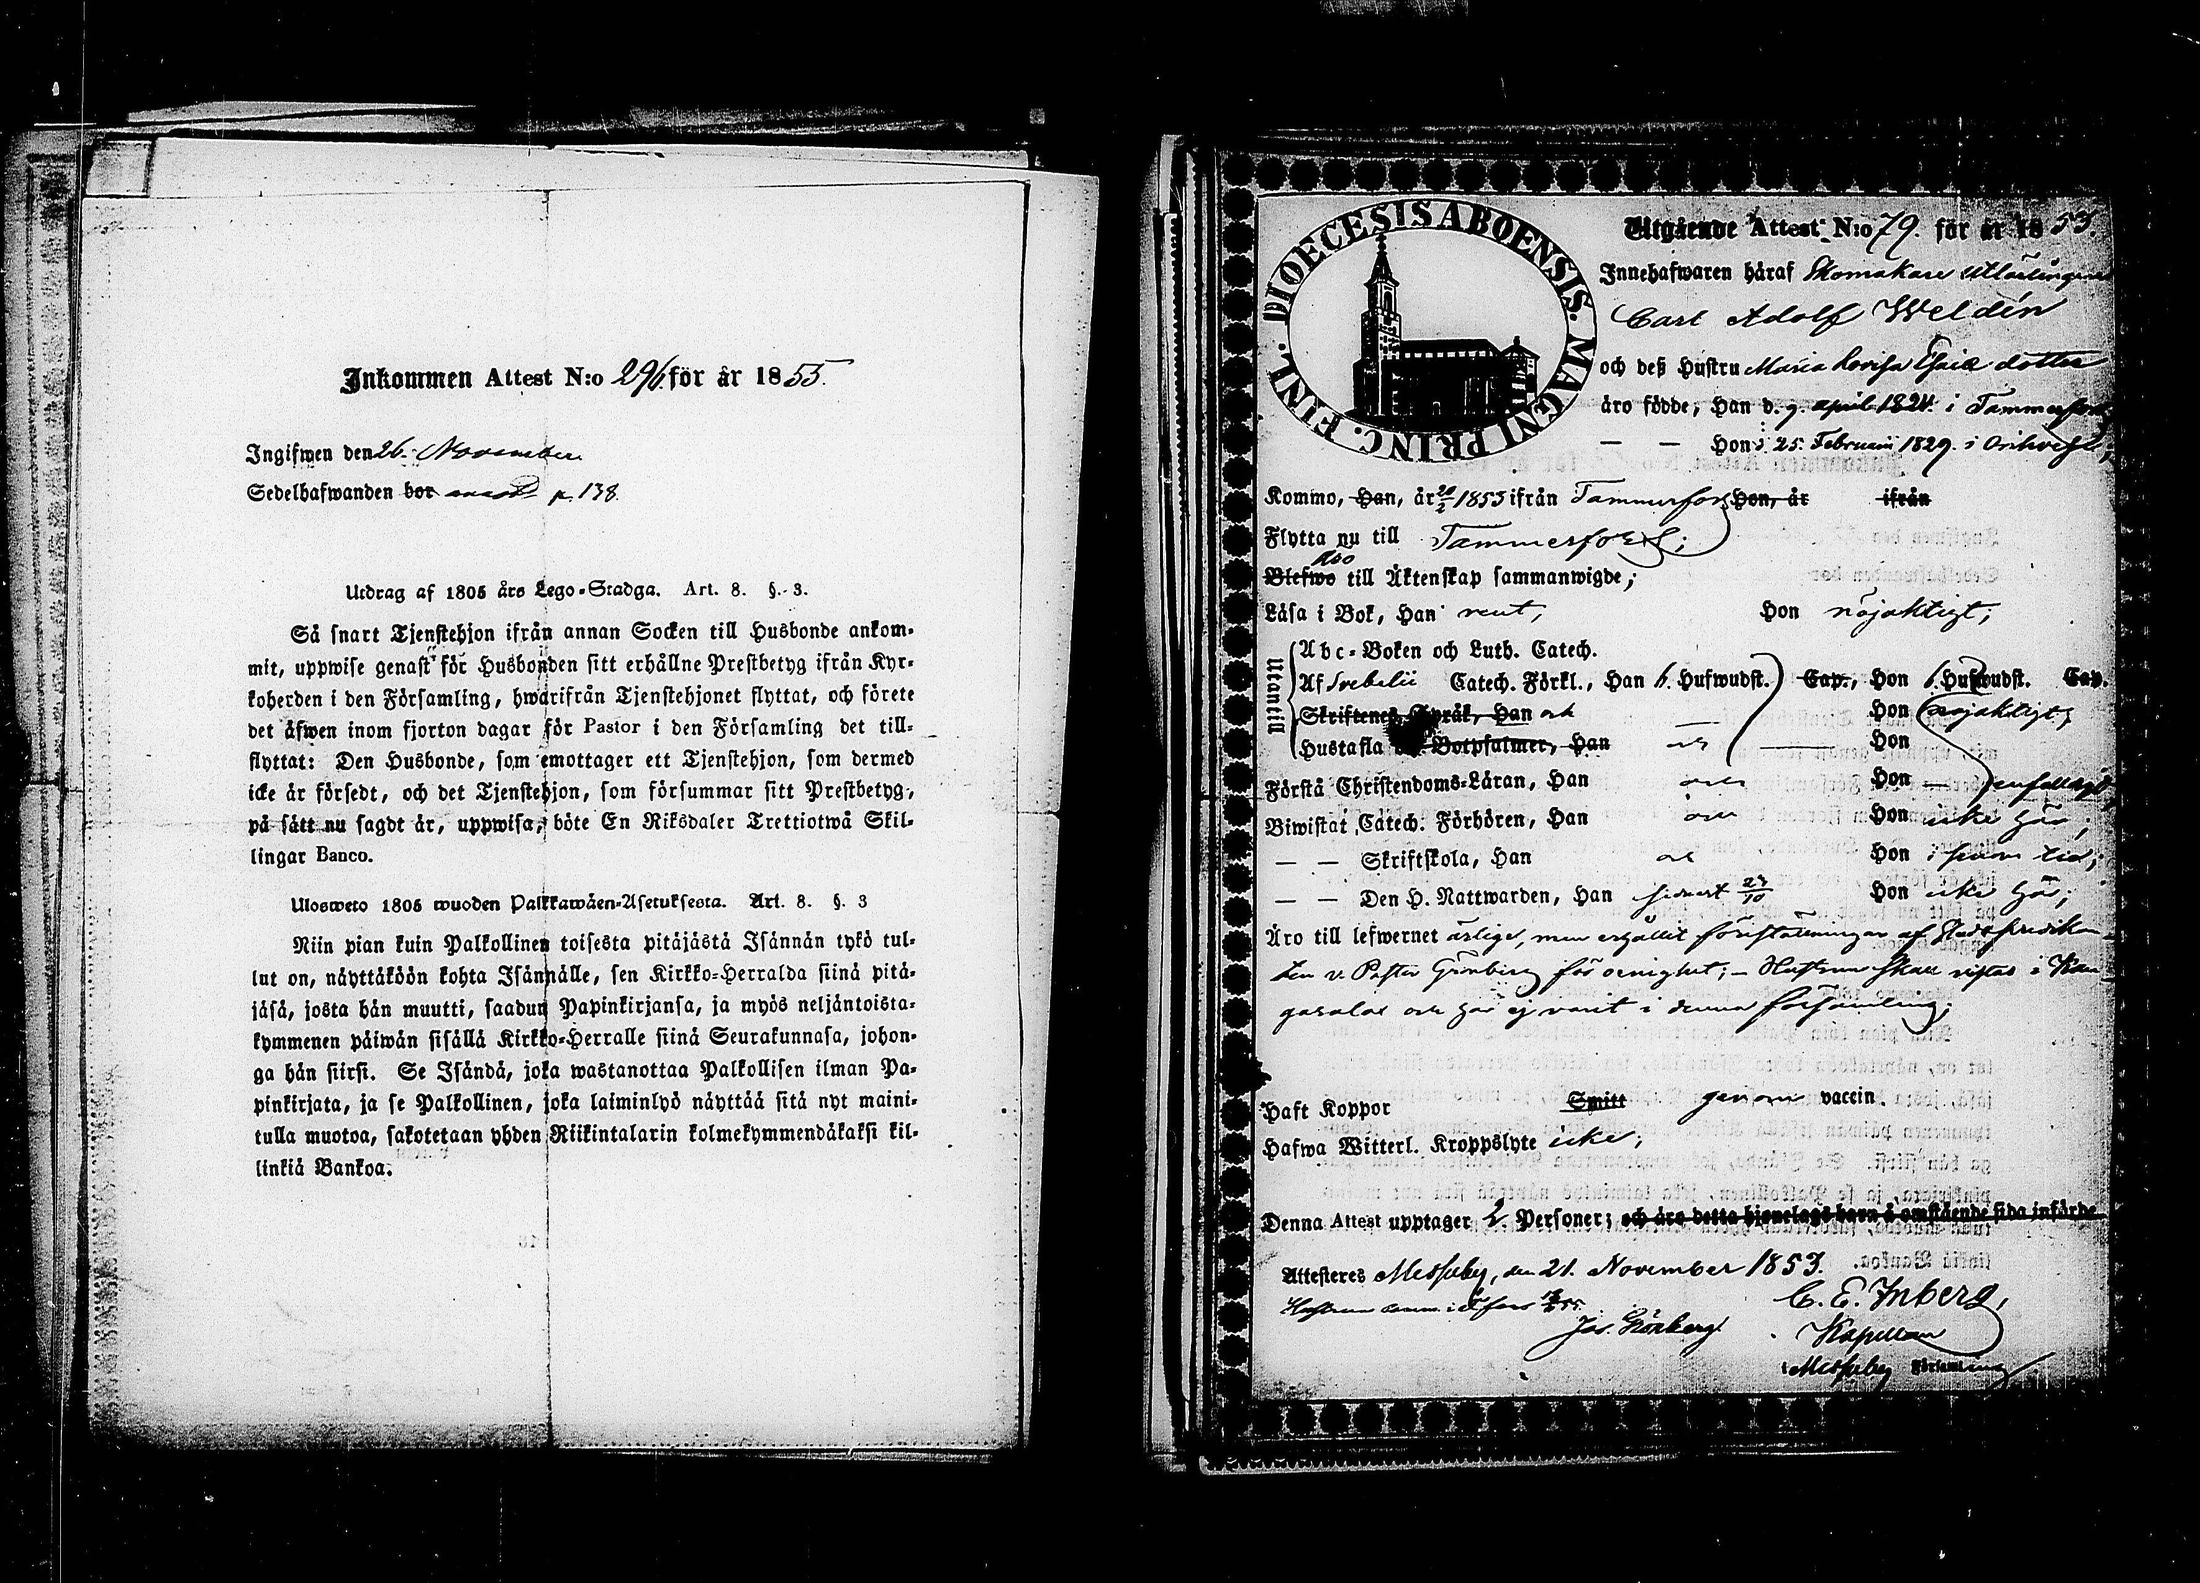 Inkommen Attest N:o 296. för år 1855.
Ingifwen den 26. November
Sedelhafwanden bor p. 138.
Utdrag af 1805 års Lego-Stadga. Art. 8. §. 3.
Så snart Tjenstehjon ifrån annan Socken till Husbonde ankom-
mit, uppwise genast för Husbonden sitt erhållne Prestbetyg ifrån Kyr-
koherden i den Församling, hwarifrån Tjenstehjonet flyttat, och förete
det äfwen inom fjorton dagar för Pastor i den Församling det till-
flyttat: Den Husbonde, som emottager ett Tjenstehjon, som dermed
icke är försedt, och det Tjenstehjon, som försummar sitt Prestbetyg,
på sätt nu sagdt är, uppwisa, böte En Riksdaler Trettiotwå Skil-
lingar Banco.
Ulosweto 1805 wuoden Palkkawäen-Asetuksesta. Art. 8. §. 3
Niin pian kuin Palkollinen toisesta pitäjästä Isännän tykö tul-
lut on, näyttäköön kohta Isännälle, sen Kirkko-Herralda siinä pitä-
jäsä, josta hän muutti, saadun Papinkirjansa, ja myös neljäntoista-
kymmenen päiwän sisällä Kirkko-Herralle siinä Seurakunnasa, johon-
ga hän siirsi. Se Isändä, joka wastanottaa Palkollisen ilman Pa-
pinkirjata, ja se Palkollinen, joka laiminlyö näyttää sitä nyt maini-
tulla muotoa, sakotetaan yhden Riikintalarin kolmekymmendäkaksi kil-
linkiä Bankoa.
DIOECESIS ABOENSIS. MAGNI PRINC. FINL.
Utgående Attest N:o 79. för år 1853.
Innehafwaren häraf Skomakare utlärlingen
Carl Adolf Weldén
och deß Hustru Maria Lovisa Esaiæ dotter
äro födde, Han d. 9. april 1824. i Tammerfors
— — Hon d. 25. Februarii 1829. i Orihvesi;
Kommo, Han, år 1853 ifrån Tammerfors Hon, år ifrån
Flytta nu till Tammerfors;
Äro
Blefwo till Äktenskap sammanwigde;
Läsa i Bok, Han rent, Hon nöjaktigt;
Utantill
Abc-Boken och Luth. Catech.
Af Svebelii Catech. Förkl., Han 6. Hufwudst. Cap., Hon 6. Hufwudst. Cap.
Skriftenes Språk, Han och — Hon nöjaktigt;
Hustafla Botpsalmer, Han och — Hon
Förstå Christendoms-Läran, Han och Hon — enfalligt
Biwistat Catech. Förhören, Han och Hon icke här;
— — Skriftskola, Han och Hon i sinom tid;
— — Den H. Nattwarden, Han senast 23/10 Hon icke här;
Äro till lefwernet ärlige, men erhållit föreställningar af Stadspredikan-
ten v. Pastor Grönberg för oenighet; – Hustrun skall vistas i Kan-
gasala och har ej varit i denna församling;
Haft Koppor Smitt genom vaccin.
Hafwa Witterl. Kroppslyte icke;
Denna Attest upptager 2. Personer; och äro detta hjonelags barn å omstående sida införde
Attesteres Messuby, den 21. November 1853.
C. E. Inberg,
Jos. Grönberg.
Kapellan
i Messuby Församling